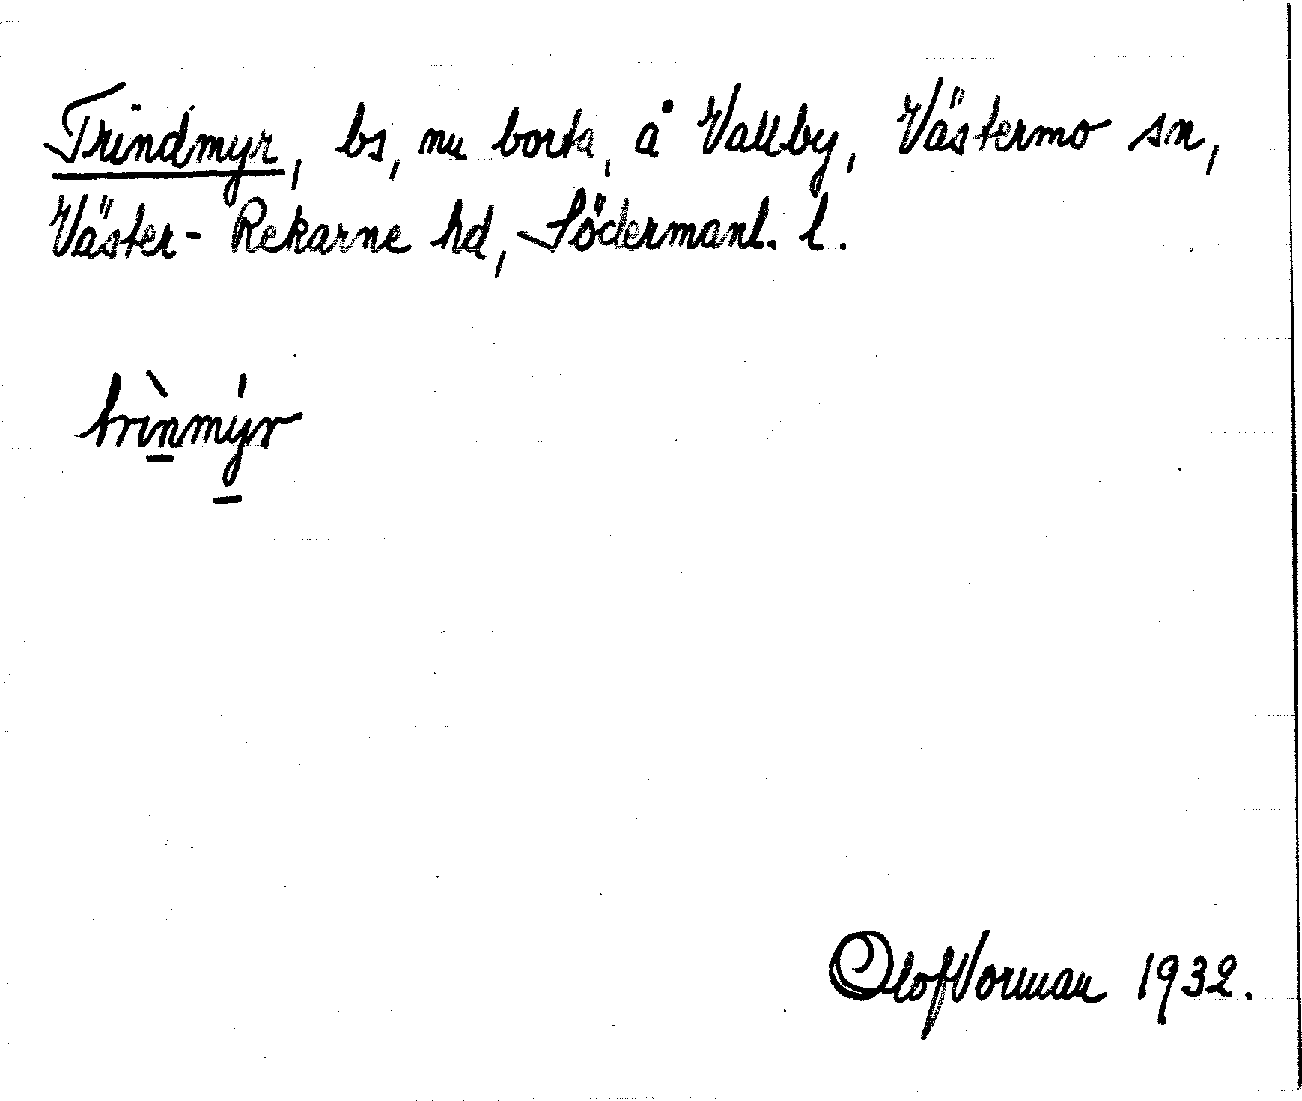 Trindmyr, bs, nu borta, å Vallby, Västermo sn,
Väster-Rekarne hd, Södermanl. l.
trìnmýr
Olof Vorman 1932.